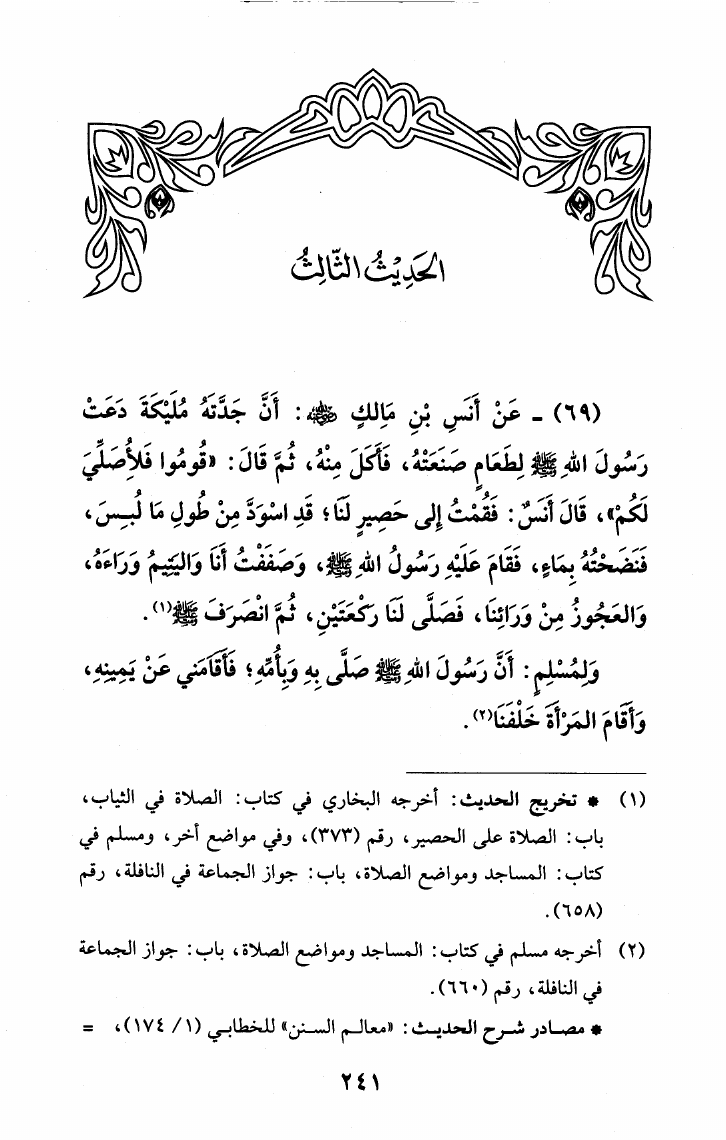 الحَدِيْثُ الثَّالِثُ
(٦٩) - عَنْ أَنَسِ بْنِ مَالِكٍ رضي الله عنه: أَنَّ جَدَّتَهُ مُلَيْكَةَ دَعَتْ
رَسُولَ اللهِ ﷺ لِطَعَامٍ صَنَعَتْهُ، فَأَكَلَ مِنْهُ، ثُمَّ قَالَ: «قُومُوا فَلأُصَلِّيَ
لَكُمْ»، قَالَ أَنَسٌ: فَقُمْتُ إِلى حَصِيرٍ لَنَا؛ قَدِ اسْوَدَّ مِنْ طُولِ مَا لُبِسَ،
فَنَضَحْتُهُ بِمَاءٍ، فَقَامَ عَلَيْهِ رَسُولُ اللهِ ﷺ، وَصَفَفْتُ أَنَا وَاليَتِيمُ وَرَاءَهُ،
وَالعَجُوزُ مِنْ وَرَائِنَا، فَصَلَّى لَنَا رَكْعَتَيْنِ، ثُمَّ انْصَرَفَ ﷺ(١).
وَلِمُسْلِمٍ: أَنَّ رَسُولَ اللهِ ﷺ صَلَّى بِهِ وَبِأُمِّهِ؛ فَأَقَامَني عَنْ يَمِينِهِ،
وَأَقَامَ المَرْأَةَ خَلْفَنَا(٢).
(١) * تخريج الحديث: أخرجه البخاري في كتاب: الصلاة في الثياب،
باب: الصلاة على الحصير، رقم (٣٧٣)، وفي مواضع أخر، ومسلم في
كتاب: المساجد ومواضع الصلاة، باب: جواز الجماعة في النافلة، رقم
(٦٥٨).
(٢) أخرجه مسلم في كتاب: المساجد ومواضع الصلاة، باب: جواز الجماعة
في النافلة، رقم (٦٦٠).
* مصادر شرح الحديث: «معالم السنن» للخطابي (١/ ١٧٤)، =
٢٤١